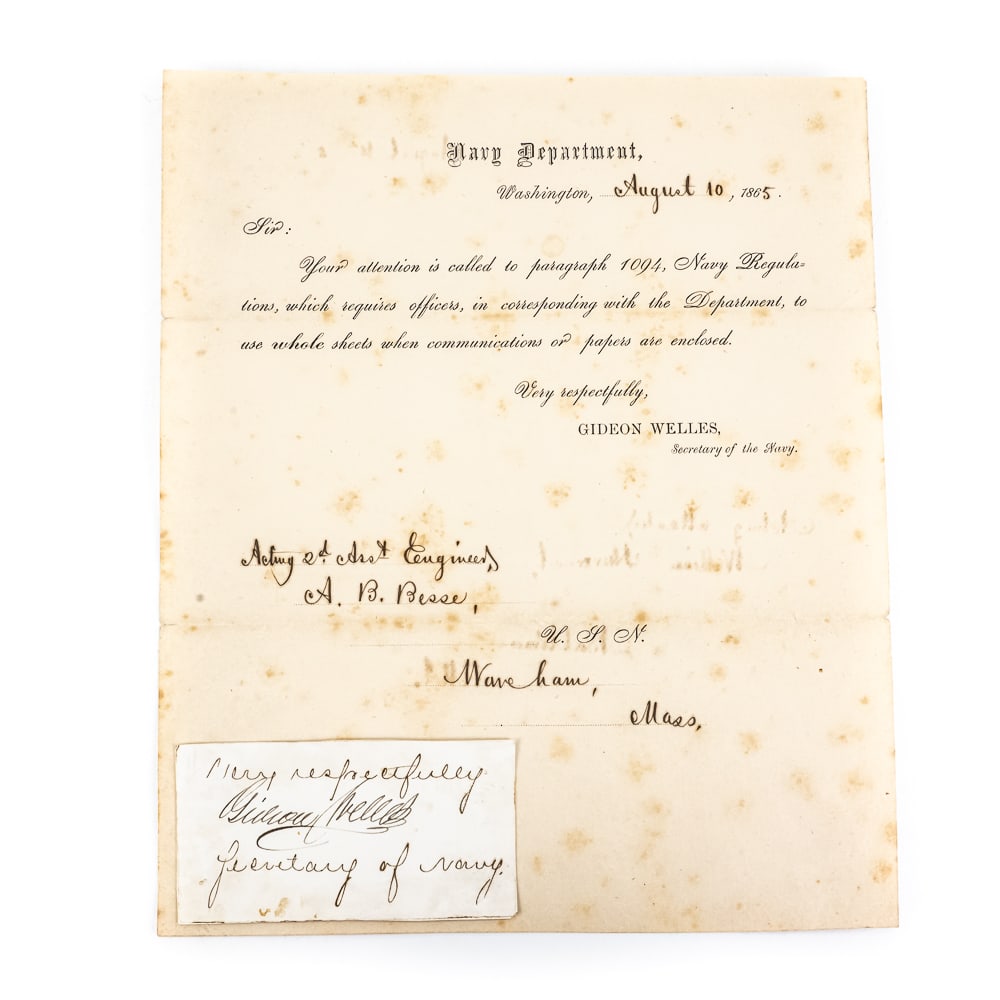 Navy Department,
Washington, August 10, 1865.
Sir:
Your attention is called to paragraph 1094, Navy Regula-
tions, which requires officers, in corresponding with the Department, to
use whole sheets when communications or papers are enclosed.
Very respectfully,
GIDEON WELLES,
Secretary of the Navy.
Acting 2d Asst Engineer,
A. B. Besse,
U. S. N.
Wareham,
Mass,
Very respectfully
Gideon Welles
Secretary of Navy.